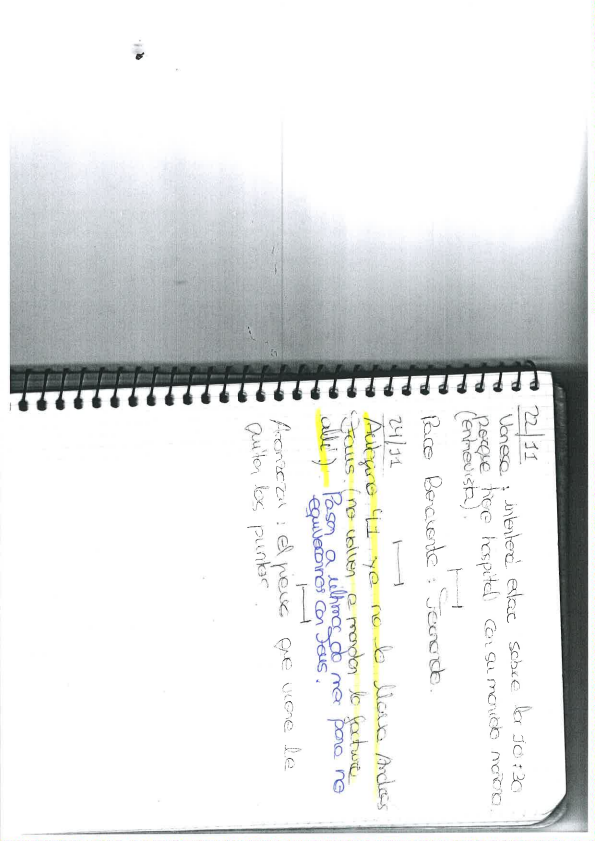 22/11
Vanesa : intentará estar sobre las 10:30
porque tiene hospital con su marido mañana.
(entrevista).
Paco Benavente : Fernando.
24/11
41 ya no lo lleva Andres
(no volver a mandar la factura
allí) Pasar a última do mer para no
equivocarnos con Jaus.
: el jueves que viene le
quitan los puntos.